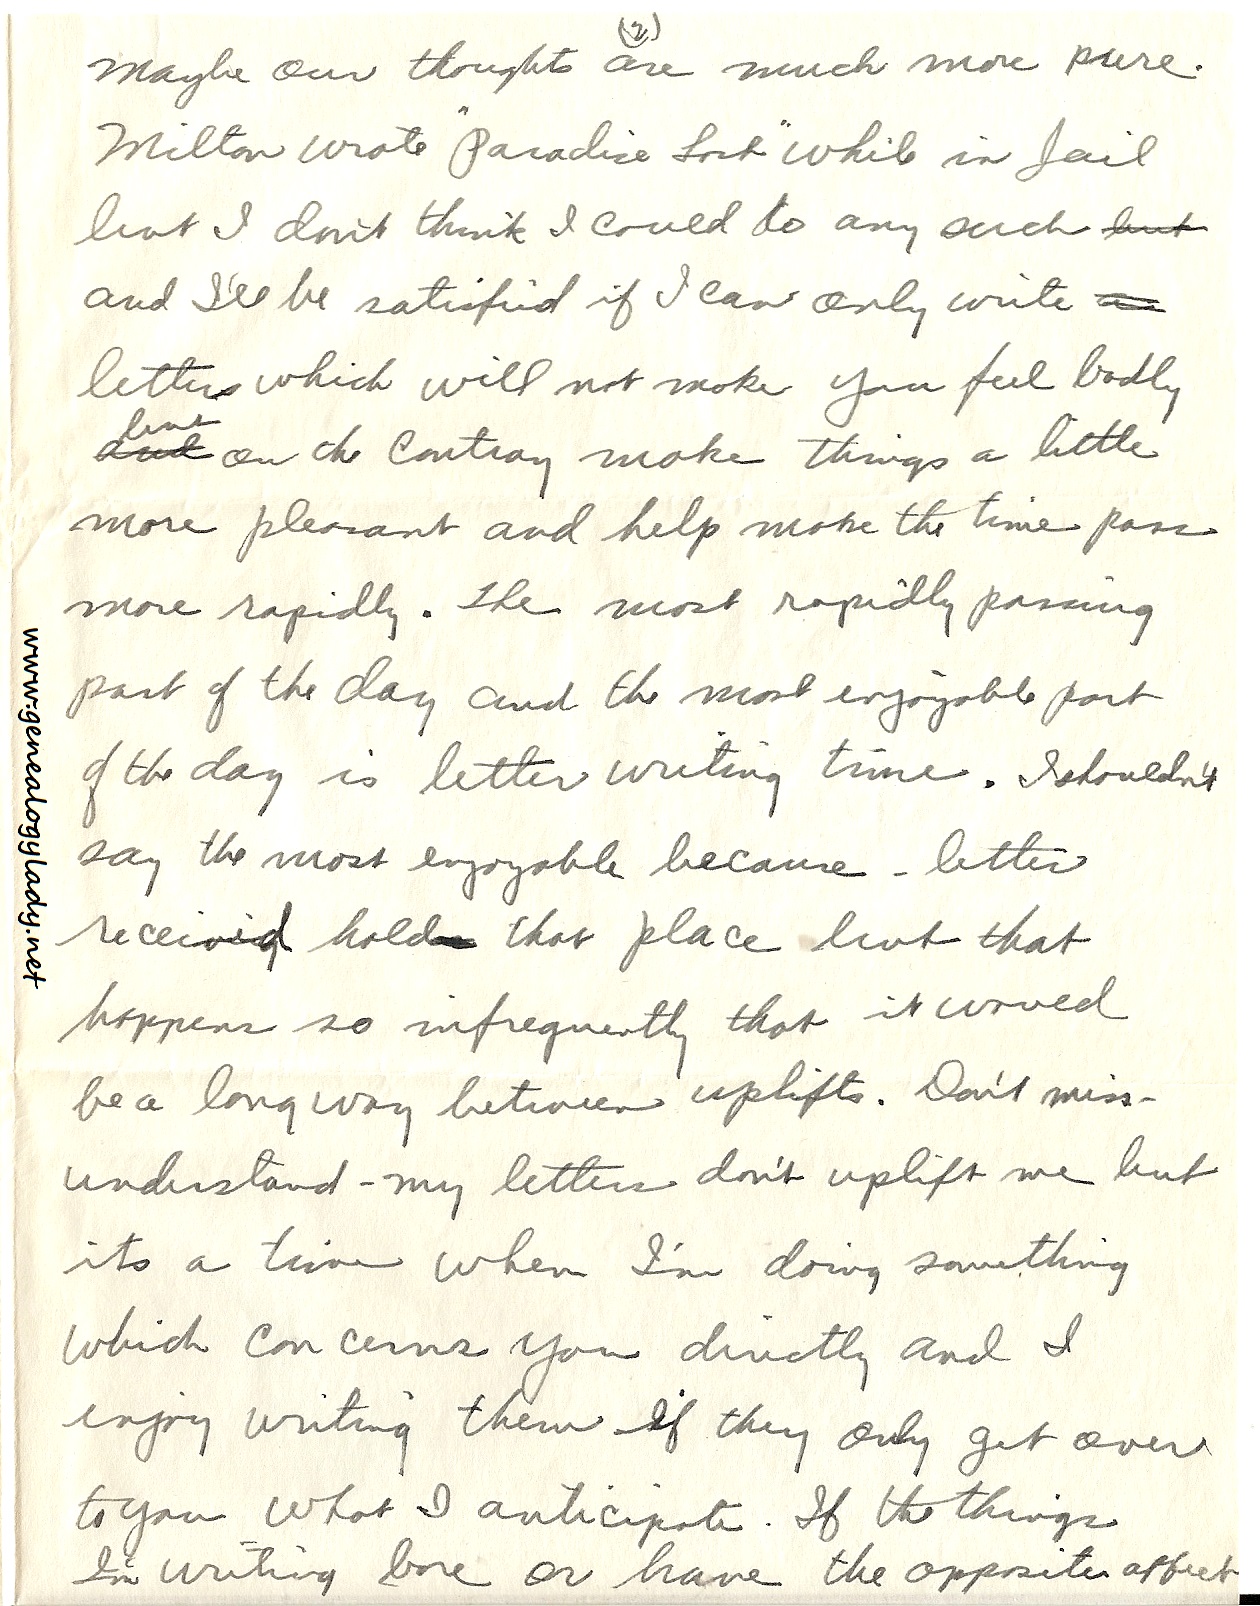 (2)
maybe our thoughts are much more pure.
Milton wrote "Paradise Lost" while in Jail
but I don't think I could do any such but
and I'll be satisfied if I can only write a
letters which will not make you feel badly
but
and on the contray make things a little
more pleasant and help make the time pass
more rapidly. The most rapidly passing
part of the day and the most enjoyable part
of the day is letter writing time. I shouldn't
say the most enjoyable because - letter
received hold that place but that
happens so infrequently that it would
be a long way between uplifts. Don't miss-
understand - my letters don't uplift me but
its a time when I'm doing something
which concerns you directly and I
enjoy writing them if they only get over
to you what I anticipate. If the things
I'm writing bore or have the opposite affect
www.genealogylady.net